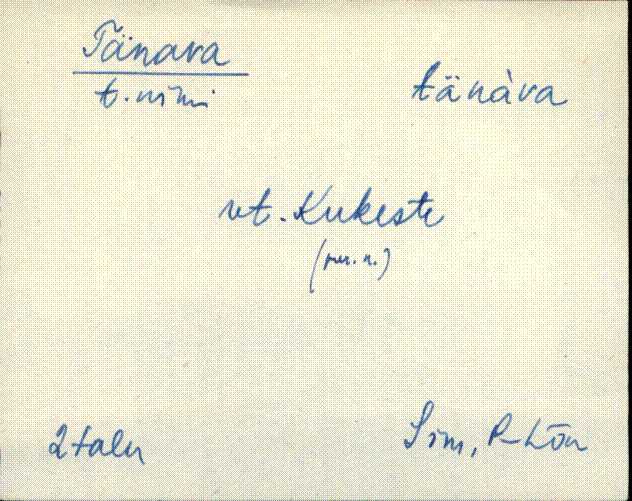 Tänava
t. nimi
tänàva
vt. Kukeste
(per. n.)
2 talu
Sim, R-Lõu